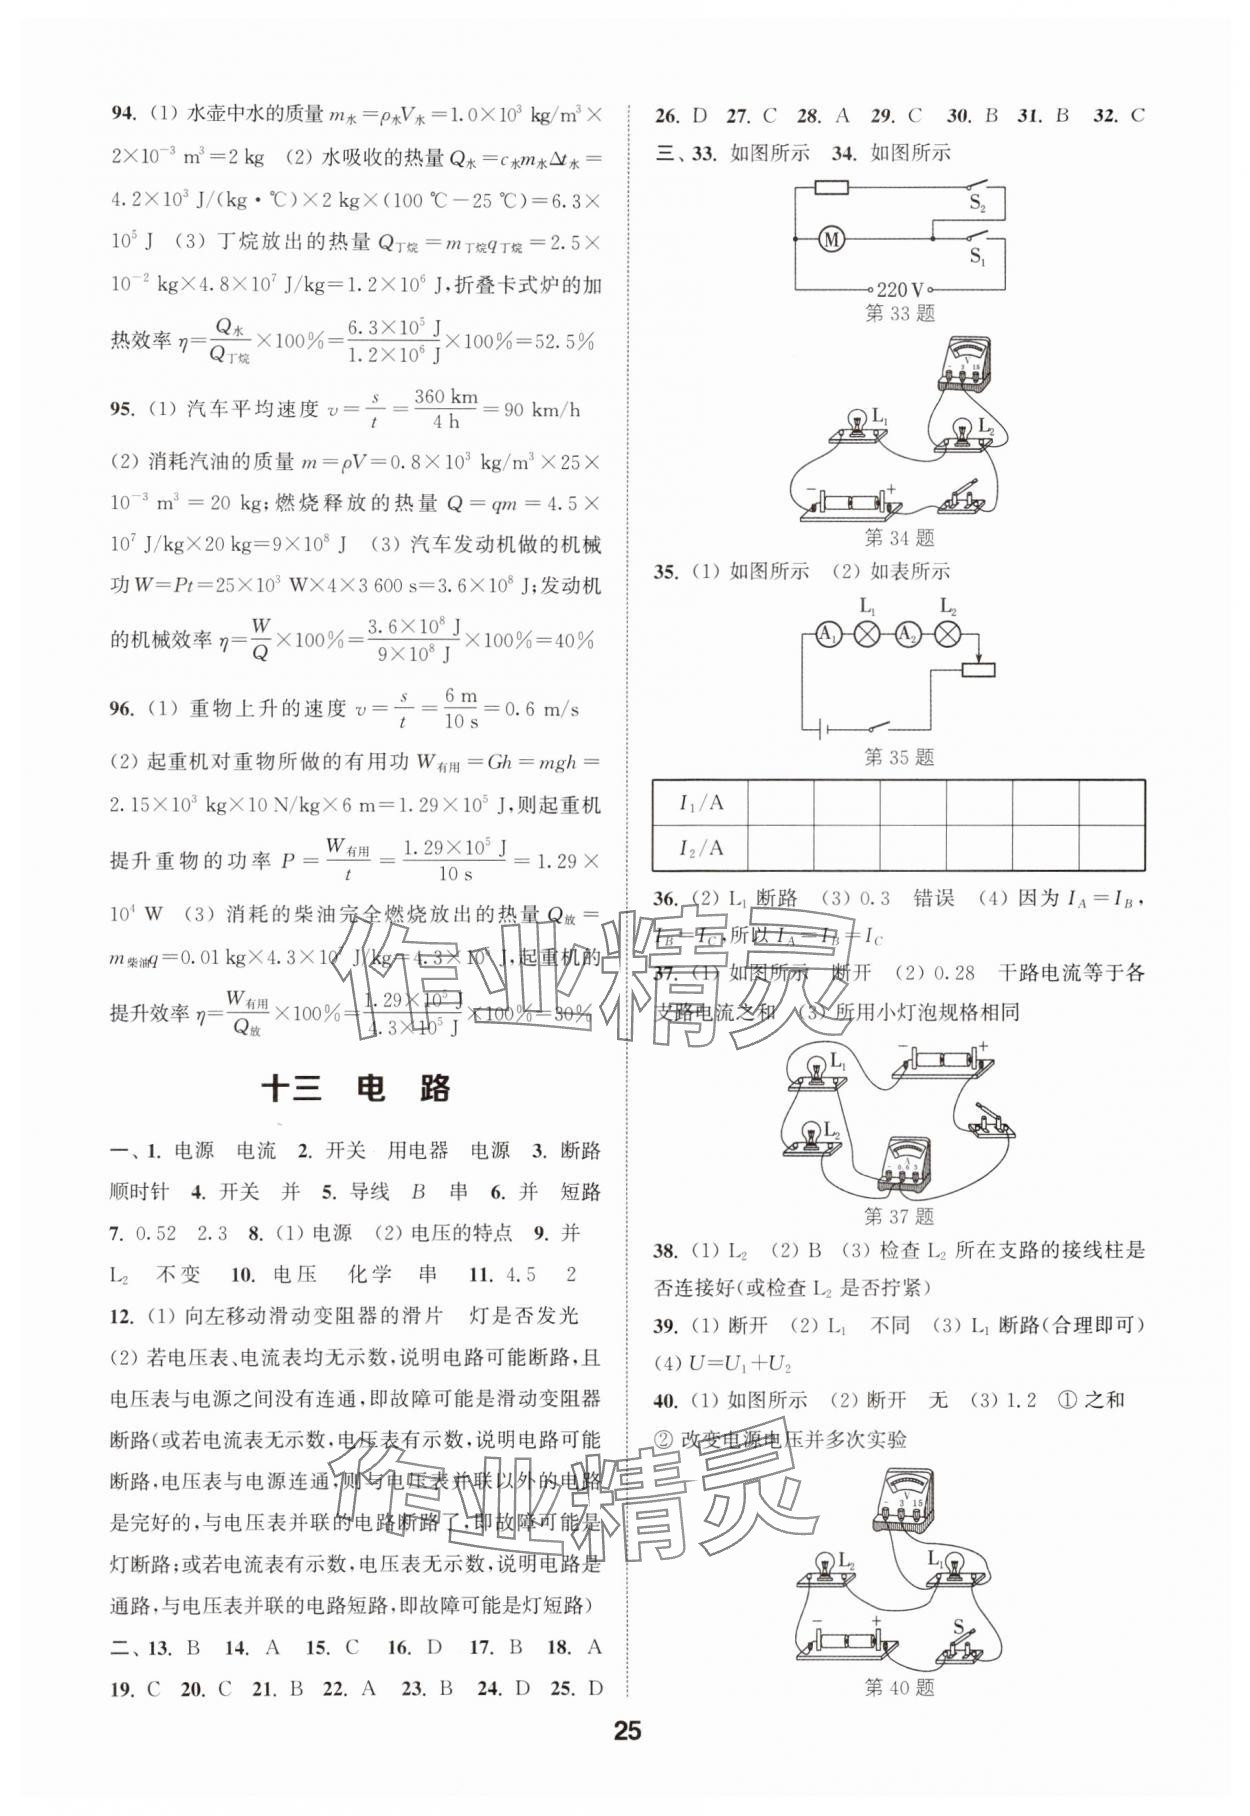 94. (1) 水壶中水的质量 m水=ρ水V水=1.0×10³ kg/m³×
2×10⁻³ m³=2 kg (2) 水吸收的热量 Q水=c水m水Δt水=
4.2×10³ J/(kg·℃)×2 kg×(100 ℃-25 ℃)=6.3×
10⁵ J (3) 丁烷放出的热量 Q丁烷=m丁烷q丁烷=2.5×
10⁻² kg×4.8×10⁷ J/kg=1.2×10⁶ J,折叠卡式炉的加
热效率 η=Q水/Q丁烷×100%=6.3×10⁵ J/1.2×10⁶ J×100%=52.5%
95. (1) 汽车平均速度 v=s/t=360 km/4 h=90 km/h
(2) 消耗汽油的质量 m=ρV=0.8×10³ kg/m³×25×
10⁻³ m³=20 kg;燃烧释放的热量 Q=qm=4.5×
10⁷ J/kg×20 kg=9×10⁸ J (3) 汽车发动机做的机械
功W=Pt=25×10³ W×4×3 600 s=3.6×10⁸ J;发动机
的机械效率 η=W/Q×100%=3.6×10⁸ J/9×10⁸ J×100%=40%
96. (1) 重物上升的速度 v=s/t=6 m/10 s=0.6 m/s
(2) 起重机对重物所做的有用功 W有用=Gh=mgh=
2.15×10³ kg×10 N/kg×6 m=1.29×10⁵ J,则起重机
提升重物的功率 P=W有用/t=1.29×10⁵ J/10 s=1.29×
10⁴ W (3) 消耗的柴油完全燃烧放出的热量 Q放=
m柴油q=0.01 kg×4.3×10⁷ J/kg=4.3×10⁵ J,起重机的
提升效率 η=W有用/Q放×100%=1.29×10⁵ J/4.3×10⁵ J×100%=30%
十三 电 路
一、1. 电源 电流 2. 开关 用电器 电源 3. 断路
顺时针 4. 开关 并 5. 导线 B 串 6. 并 短路
7. 0.52 2.3 8. (1) 电源 (2) 电压的特点 9. 并
L₂ 不变 10. 电压 化学 串 11. 4.5 2
12. (1) 向左移动滑动变阻器的滑片 灯是否发光
(2) 若电压表、电流表均无示数,说明电路可能断路,且
电压表与电源之间没有连通,即故障可能是滑动变阻器
断路(或若电流表无示数,电压表有示数,说明电路可能
断路,电压表与电源连通,则与电压表并联以外的电路
是完好的,与电压表并联的电路断路了,即故障可能是
灯断路;或若电流表有示数,电压表无示数,说明电路是
通路,与电压表并联的电路短路,即故障可能是灯短路)
二、13. B 14. A 15. C 16. D 17. B 18. A
19. C 20. C 21. B 22. A 23. B 24. D 25. D
26. D 27. C 28. A 29. C 30. B 31. B 32. C
三、33. 如图所示 34. 如图所示
S₂
M
S₁
220 V
第 33 题
V
- 3 15
L₁
L₂
- +
第 34 题
35. (1) 如图所示 (2) 如表所示
L₁ L₂
A₁ A₂
第 35 题
I₁/A
I₂/A
36. (2) L₁ 断路 (3) 0.3 错误 (4) 因为 I_A=I_B,
I_B=I_C,所以 I_A=I_B=I_C
37. (1) 如图所示 断开 (2) 0.28 干路电流等于各
支路电流之和 (3) 所用小灯泡规格相同
- +
L₁
L₂
A
- 0.6 3
第 37 题
38. (1) L₂ (2) B (3) 检查 L₂ 所在支路的接线柱是
否连接好(或检查 L₂ 是否拧紧)
39. (1) 断开 (2) L₁ 不同 (3) L₁ 断路(合理即可)
(4) U=U₁+U₂
40. (1) 如图所示 (2) 断开 无 (3) 1.2 ① 之和
② 改变电源电压并多次实验
V
- 3 15
L₂ L₁
- +
S
第 40 题
25
作业精灵
作业精灵